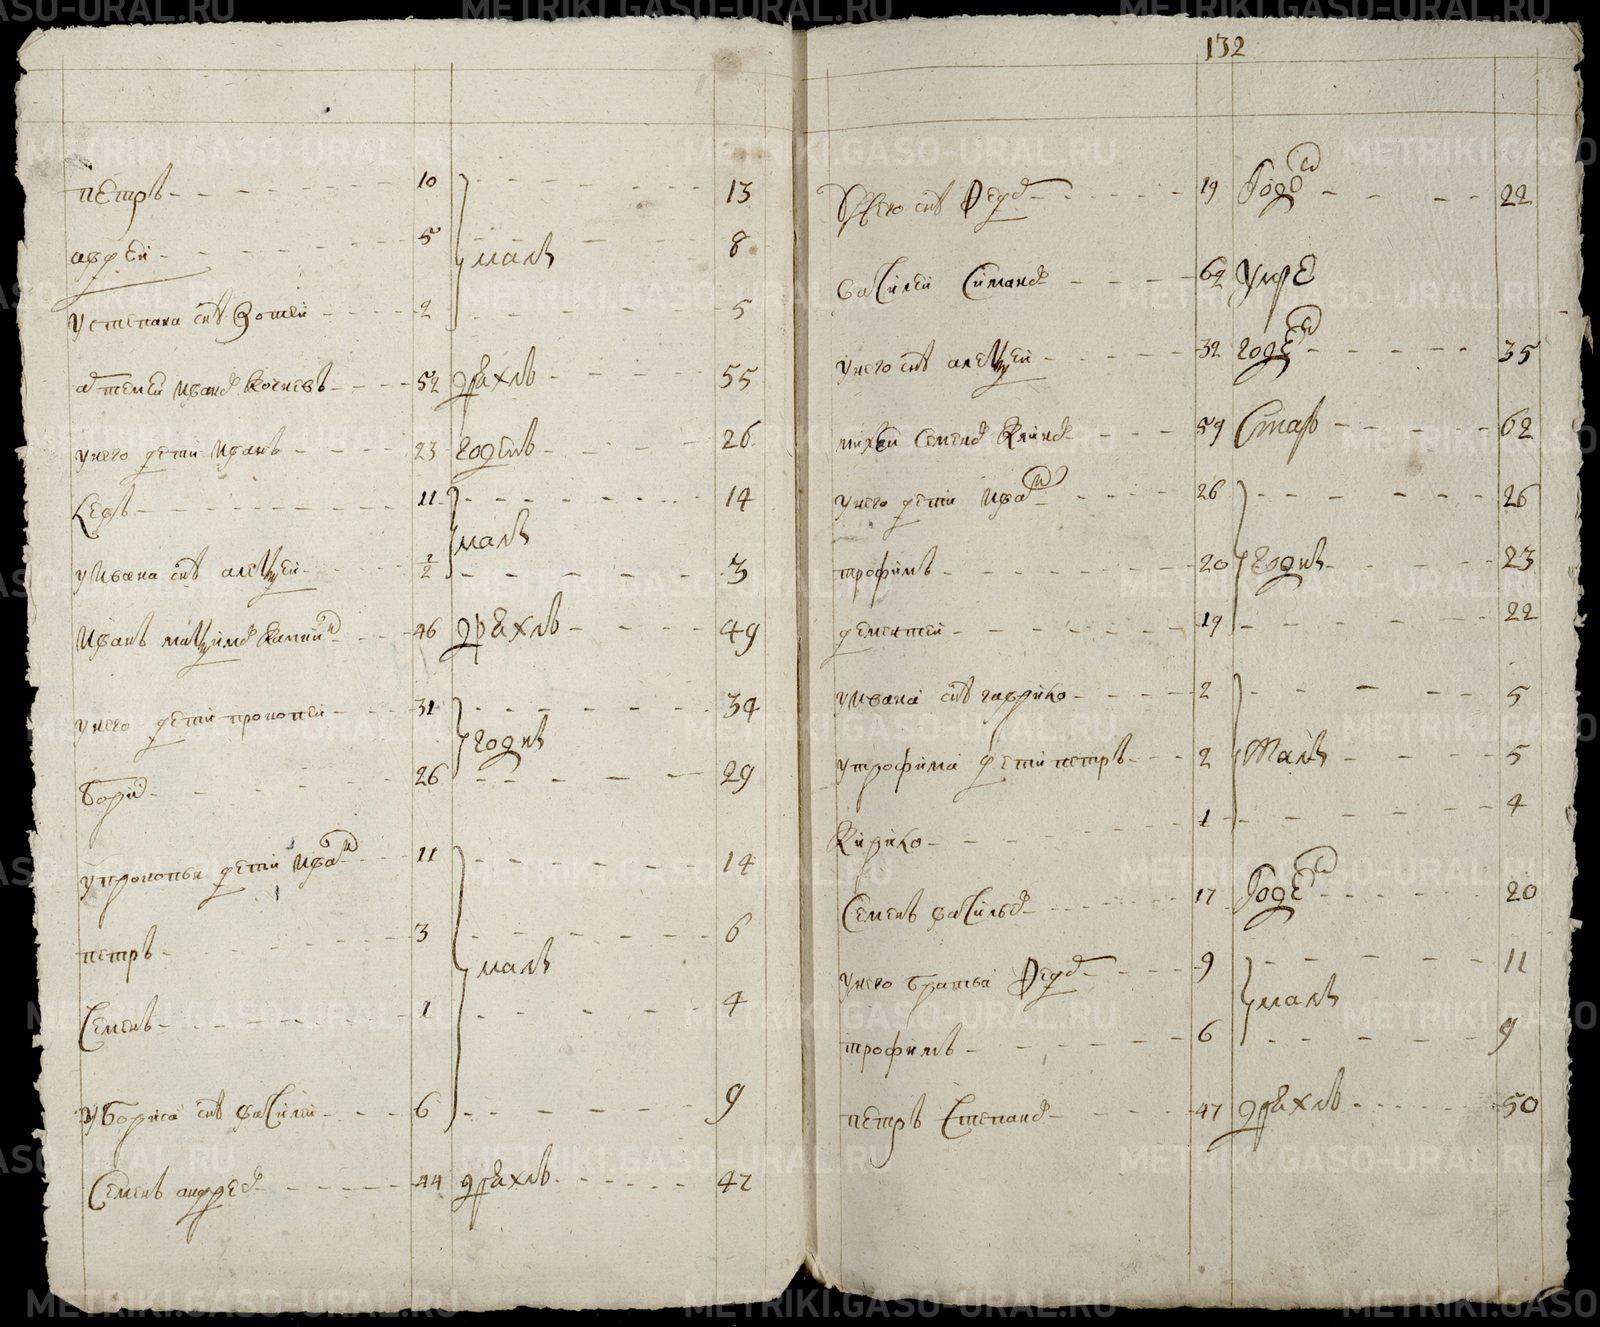 132
петръ 10 13
авдеи 5 малъ 8
устепана снъ Зотеи 2 5
артемеи Иванов Кочневъ 52 дряхлъ 55
унего дети Иванъ 23 годенъ 26
11 14
малъ
уИвана снъ алексеи 1/2 3
Иванъ максимов 46 дряхлъ 49
унего дети прокопеи 31 34
годнъ
борис 26 29
упрокопья дети Иван 11 14
петръ 3 6
малъ
Семенъ 1 4
уБориса снъ василеи 6 9
Семенъ андреев 44 дряхлъ 47
унего снъ Федор 19 Годен 22
василеи Симанов 69 умре
унего снъ алексеи 32 годен 35
михеи Семенов 59 Старъ 62
унего дети Иван 26 26
трофимъ 20 годнъ 23
дементеи 19 22
уИвана снъ гаврило 2 5
утрофима дети петръ 2 Малъ 5
Кирило 1 4
Семенъ васильев 17 Годен 20
унего братья Федор 9 11
малъ
трофимъ 6 9
петръ Степанов 47 дряхлъ 50
METRIKI.GASO-URAL.RU